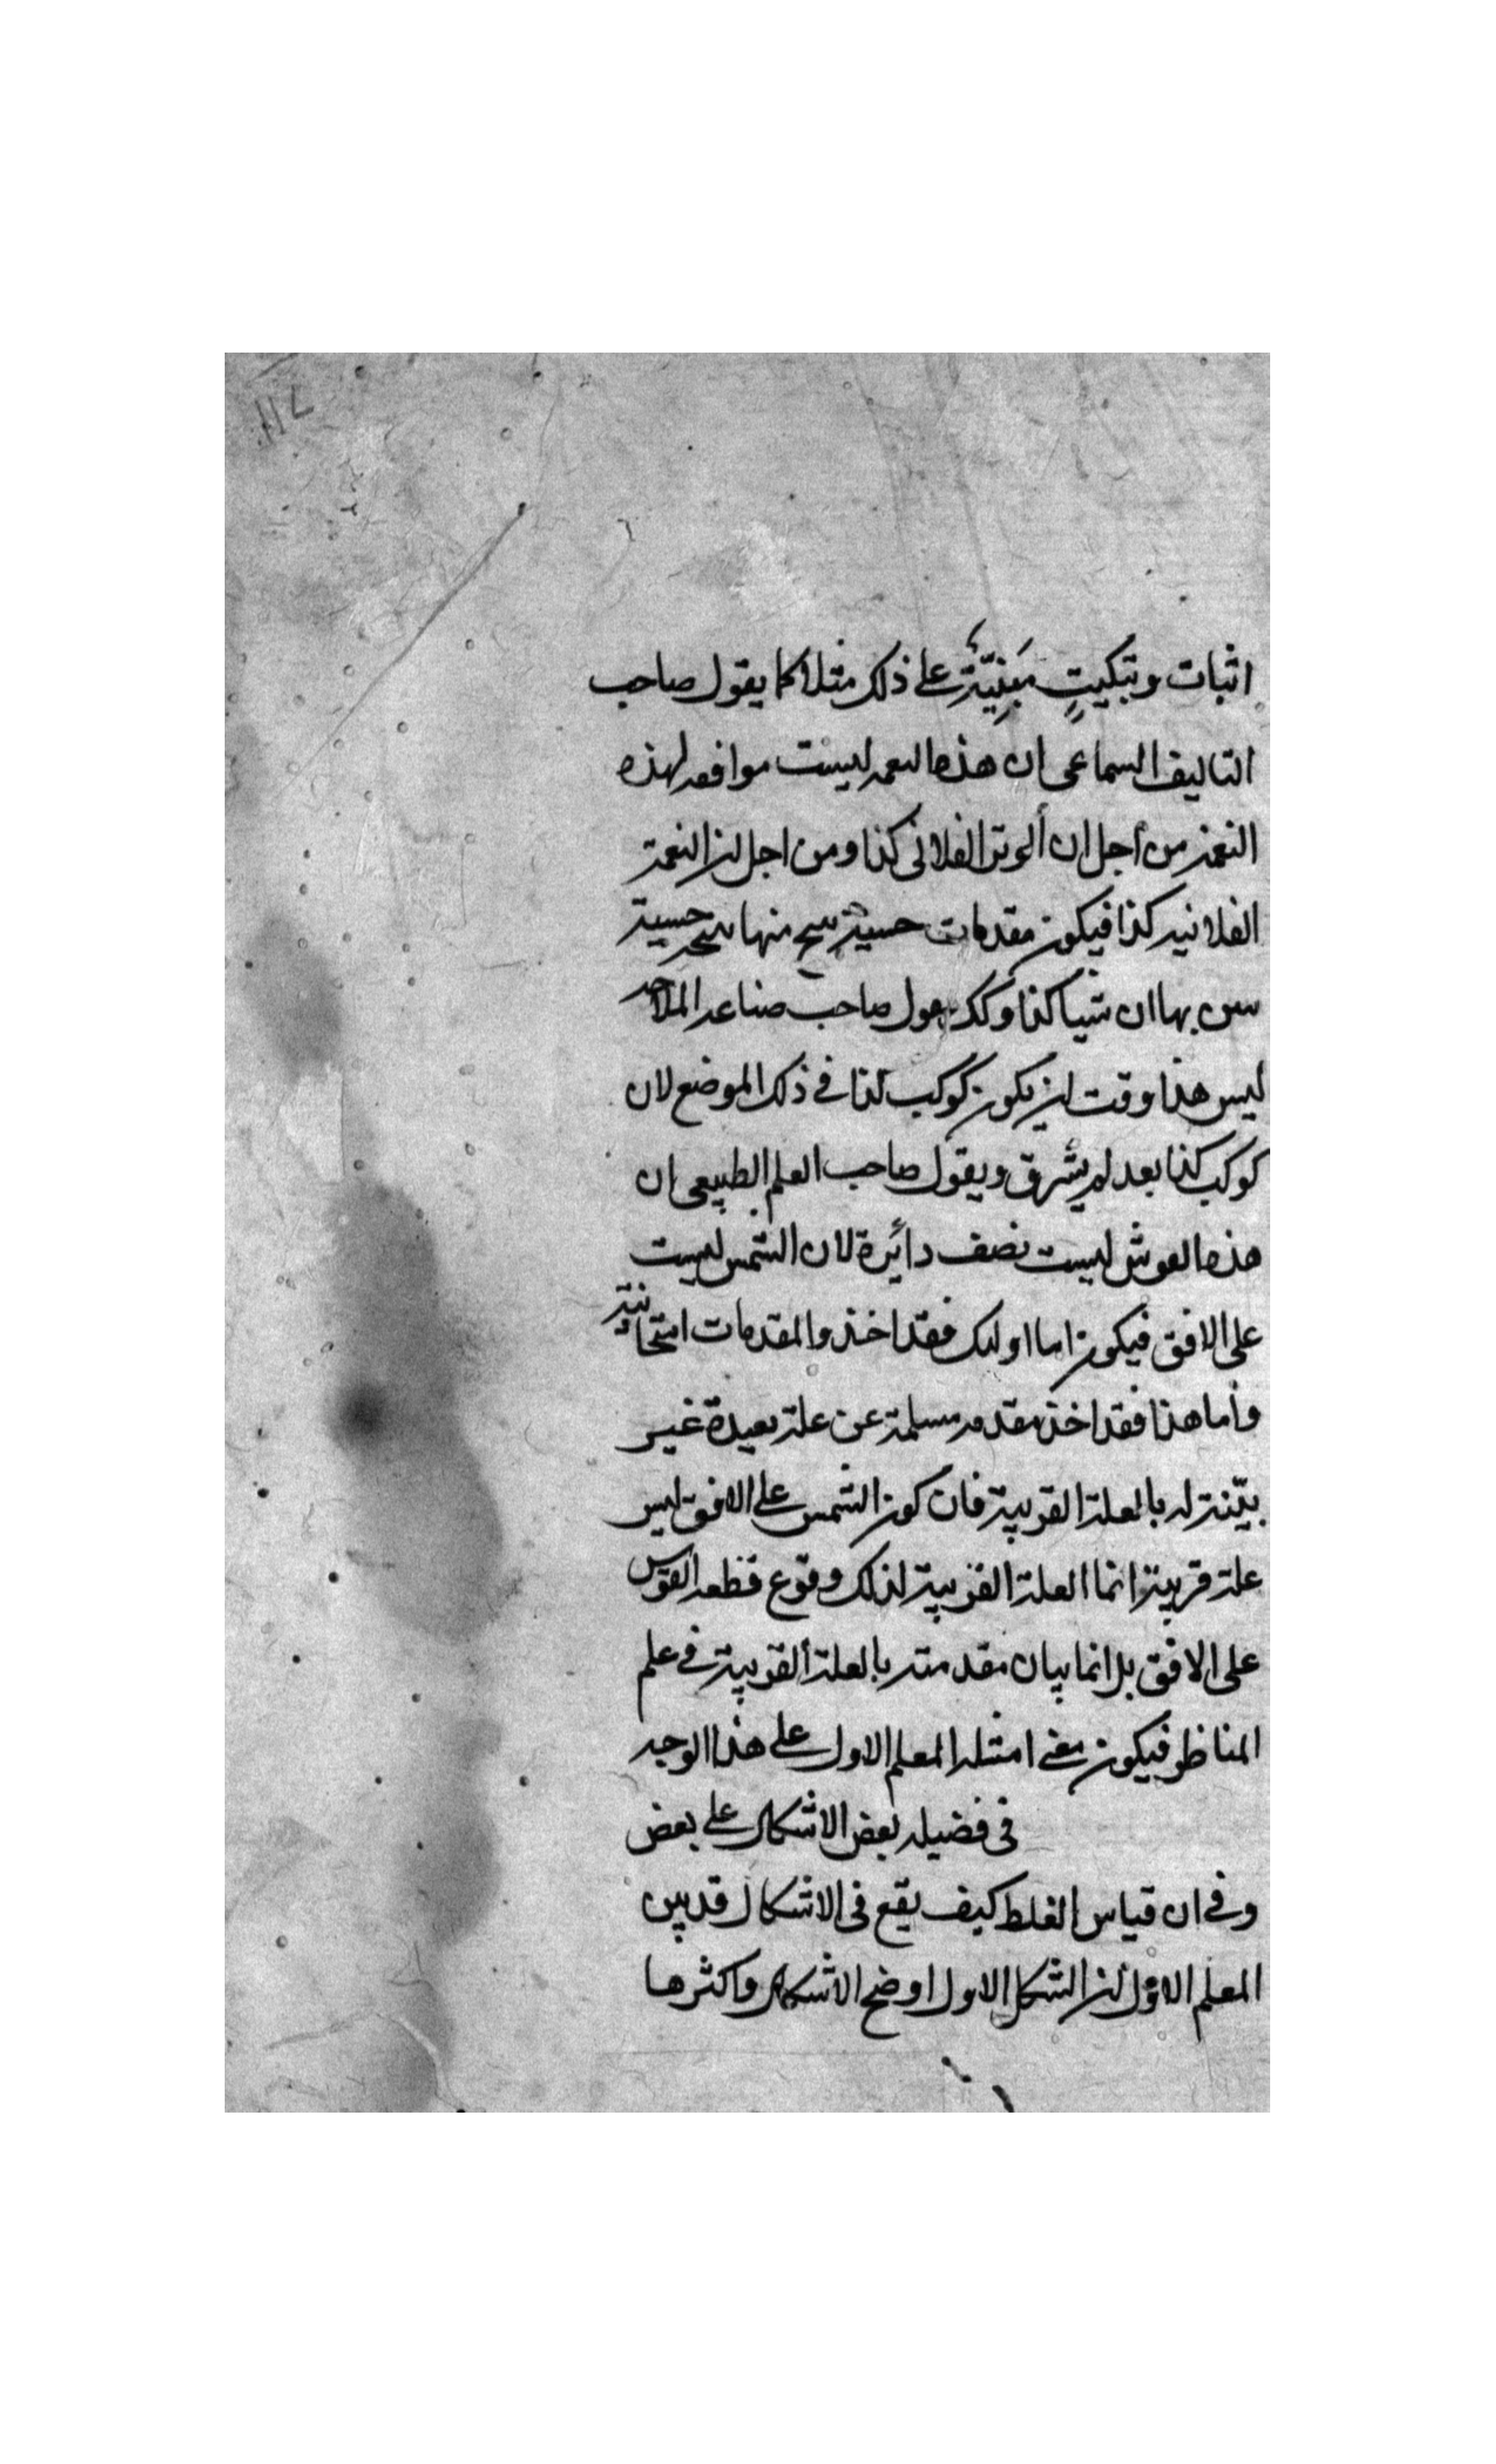 اثبات وتبكيتٍ مَبنِيّةٍ على ذلك مثلا كما يقول صاحب
التاليف السماعى ان هذه النغمه ليست موافقه لهذه
النغمة من أجل ان ألوتر الفلانى كذا ومن اجل ان النغمة
الفلانيه كذا فيكون مقدمات حسية ينتج منها نتيجه حسية
يبين بها ان شيا كذا وكذلك يقول صاحب صناعه الملاحه
ليس هذا وقت ان يكون كوكب كذا فى ذلك الموضع لان
كوكب كذا بعد لم يشرق ويقول صاحب العلم الطبيعى ان
هذه القوس ليست نصف دائرة لان الشمس ليست
على الافق فيكون اما اولئك فقد اخذوا لمقدمات امتحانية
وأما هذا فقد اخذ مقدمه مسلمة عن علة بعيدة غير
بيّنة له بالعلة القريبة فان كون الشمس على الافق ليس
علة قريبة انما العلة القريبة لذلك وقوع قطعه القوس
على الافق بل انما بيان مقدمته بالعلة ألقريبة فى علم
المناظر فيكون معنى امثله المعلم الاول على هذا الوجه
فى فضيله بعض الاشكال على بعض
وفى ان قياس الغلط كيف يقع فى الاشكال قد بين
المعلم الاوّل ان الشكل الاول اوضح الاشكال واكثرها